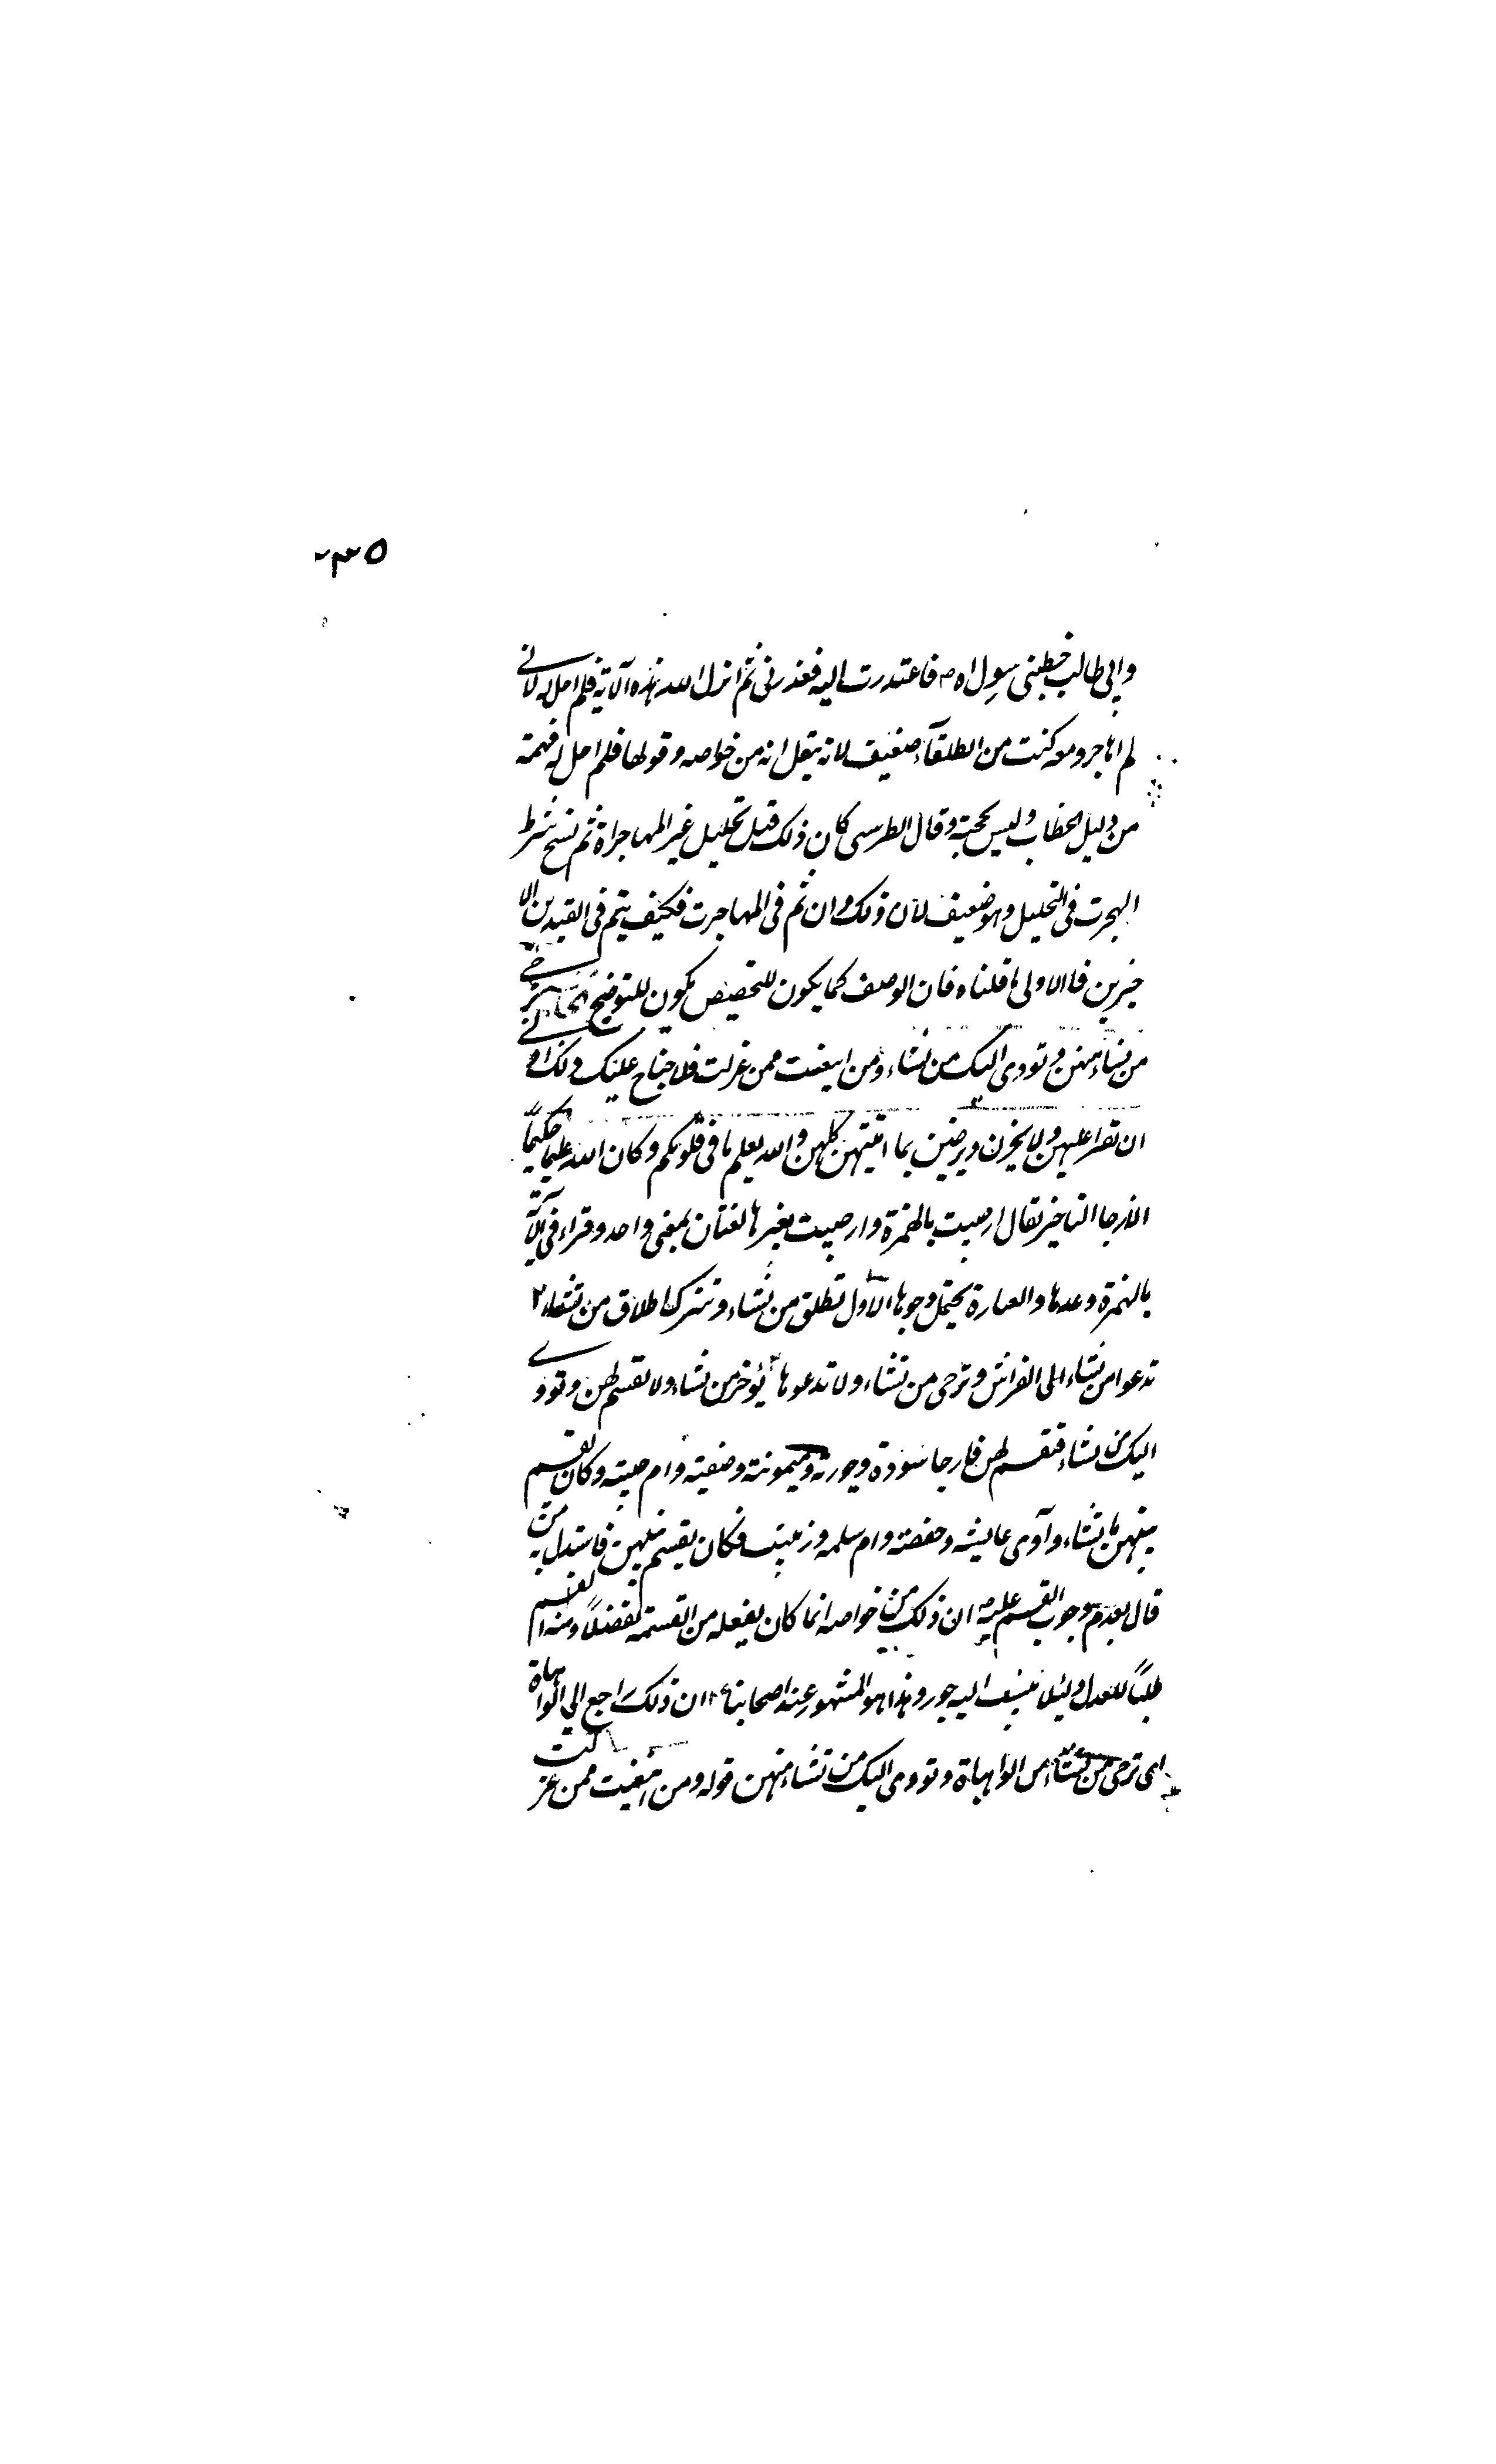 وابی طالب خطبنی رسول اه ص فاعتدرت الیه فعذرنی ثم انزل الله هذه الآیة فلم احل له لانی
لم اهاجر ومعه کنت من الطلقآء ضعیف لانه ینقل انه من خواصه وقولها فلم احل له فهمته
من دلیل الخطاب ولیس بحجة وقال الطبرسی کان ذلک قبل تحلیل غیر المهاجراة ثم نسخ شرط
الهجرت فی التحلیل وهو ضعیف لان ذلک وان تم فی المهاجرت فکیف یتم فی القیدین الا
خیرین فالاولی ما قلناه فان الوصف کما یکون للتخصیص یکون للتوضیح ترجی
من تشاء منهن وتووی الیک من تشاء ومن ابتغیت ممن عزلت فلا جناح علیک ذلک ادنی
ان تقر اعینهن ولا یحزن ویرضین بما اتیتهن کلهن والله یعلم ما فی قلوبکم وکان الله علیما حکیماً
الارجا التاخیر یقال ارجیت بالهمزة وارجیت بغیرها لغتان بمعنی واحد وقراء فی الآیة
بالهمزة وعدمها والعبارة یحتمل وجوها الاول تطلق من تشاء وتترک طلاق من تشاء ۲
تدعوا من تشاء الی الفراش وترجی من تشاء ولا تدعوها ۳ یؤخر من تشاء ولا تقسم لهن وتووی
الیک من تشاء فتقسم لهن فارجا سودة وجویرة ومیمونة وصفیة وام حبیبة وکان یقسم
بینهن ما تشاء وآوی عایشه وحفصة وام سلمه وزینب فکان یقسم بینهن فاستدل به من
قال بعدم وجوب القسم علیه ص ان ذلک من خواصه انما کان یفعله من القسمة تفضلاً ومنه لقسم
طلباً للعدل ولئلا ینسب الیه جور وهذا هو المشهور عند اصحابنا ۴ ان ذلک راجع الی الواهباة
ای ترجی من تشاء من الواهباة وتووی الیک من تشاء منهن قوله ومن ابتغیت ممن عزلت